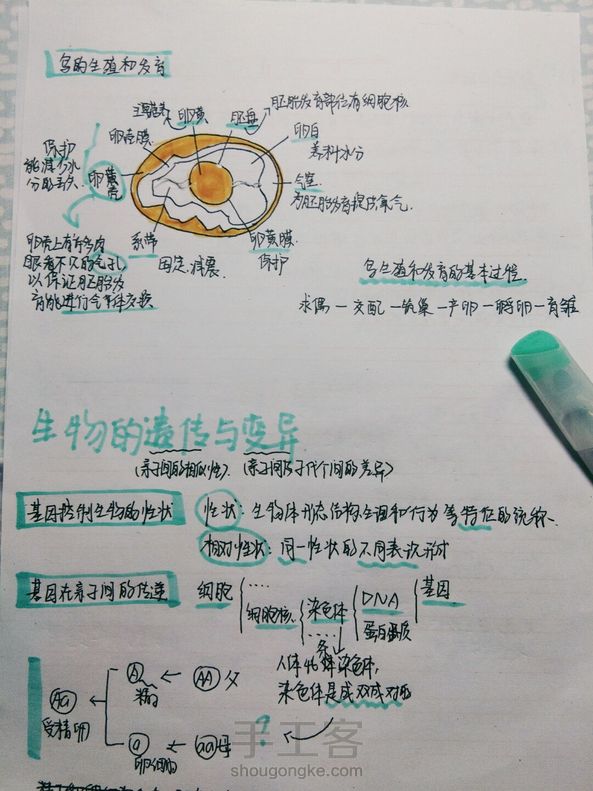 鸟的生殖和发育
卵黄
胚盘
胚胎发育部位有细胞核
卵壳膜
卵白
养料水分
保护
能减少水
分的丢失
卵黄
壳
气室
为胚胎发育提供氧气.
卵壳上有许多肉
眼看不见的气孔,
以保证胚胎发
育能进行气体交换
系带
固定.减震
卵黄膜
保护
鸟生殖和发育的基本过程.
求偶一交配一筑巢一产卵一孵卵一育雏
生物的遗传与变异
(亲子间的相似性). (亲子间及子代个间的差异)
基因控制生物的性状
性状: 生物体形态结构.生理和行为等特征的统称.
相对性状: 同一性状的不同表现形式
基因在亲子间的传递
细胞
....
细胞核
染色体
....
DNA
蛋白质
基因
人体46条染色体,
染色体是成双成对的
Aa
受精卵
A
精子
AA 父
a
卵细胞
aa 母
?
手工客
shougongke.com